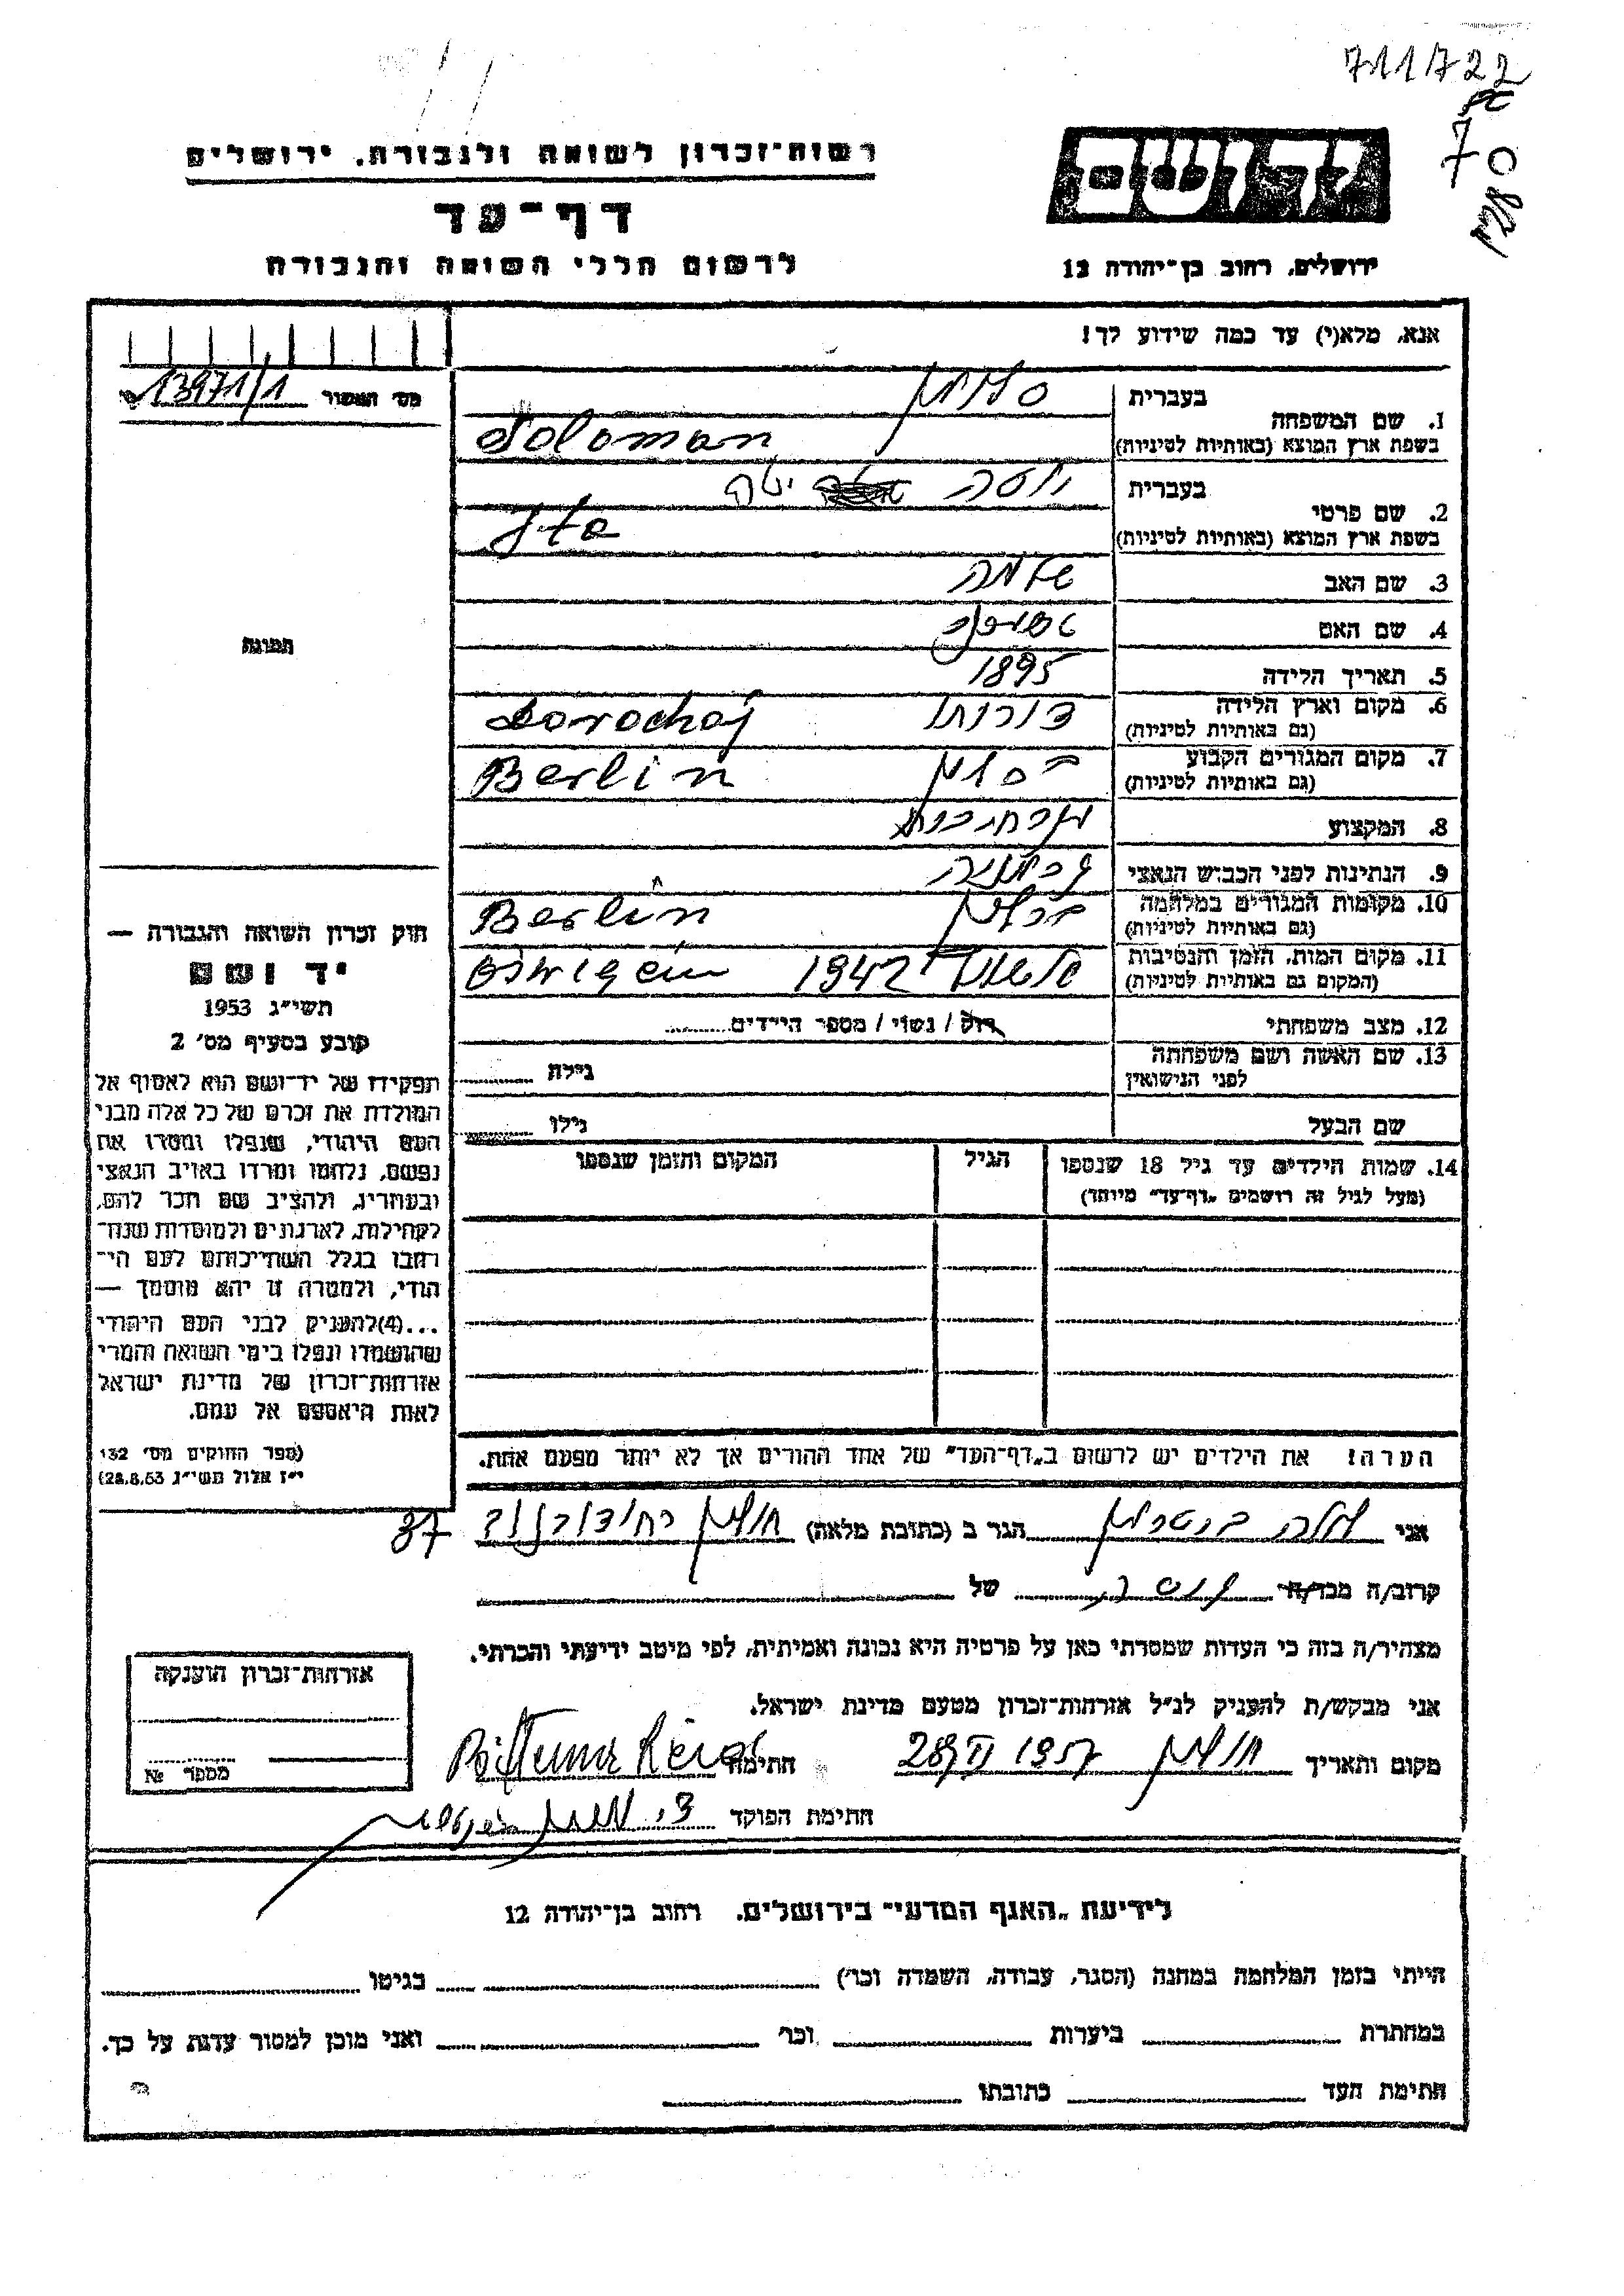 711722
70
רשות־זכרון לשואה ולגבורה, ירושלים
יד ושם
דף־עד
לרשום חללי השואה והגבורה
ירושלים, רחוב בן־יהודה 12
אנא, מלא(י) עד כמה שידוע לך!
מס' השפור 13971/1
1. שם המשפחה
בעברית
בשפת ארץ המוצא (באותיות לטיניות) Soloman
2. שם פרטי
בעברית יטה
בשפת ארץ המוצא (באותיות לטיניות) Jta
3. שם האב שלמה
4. שם האם
5. תאריך הלידה 1895
6. מקום וארץ הלידה
(גם באותיות לטיניות) Dorochoj
7. מקום המגורים הקבוע
(גם באותיות לטיניות) Berlin
8. המקצוע
9. הנתינות לפני הכבוש הנאצי
10. מקומות המגורים במלחמה ברלין
(גם באותיות לטיניות) Berlin
11. מקום המות, הזמן והנסיבות
(המקום גם באותיות לטיניות) 1942
12. מצב משפחתי רוק / נשוי / מספר הילדים
13. שם האשה ושם משפחתה
לפני הנישואין
גילה
שם הבעל
גילו
14. שמות הילדים עד גיל 18 שנספו
(מעל לגיל זה רושמים „דף־עד" מיוחד)
הגיל
המקום והזמן שנספו
הערה! את הילדים יש לרשום ב„דף־העד" של אחד ההורים אך לא יותר מפעם אחת.
תמונה
חוק זכרון השואה והגבורה —
יד ושם
תשי"ג 1953
קובע בסעיף מס' 2
תפקידו של יד־ושם הוא לאסוף אל
המולדת את זכרם של כל אלה מבני
העם היהודי, שנפלו ומסרו את
נפשם, נלחמו ומרדו באויב הנאצי
ובעוזריו, ולהציב שם וזכר להם,
לקהילות, לארגונים ולמוסדות שנח־
רבו בגלל השתייכותם לעם הי־
הודי, ולמטרה זו יהא מוסמך —
...(4)להעניק לבני העם היהודי
שהושמדו ונפלו בימי השואה והמרי
אזרחות־זכרון של מדינת ישראל
לאות היאספם אל עמם.
(ספר החוקים מס' 132
י"ז אלול תשי"ג 28.8.53)
אני הגר ב (כתובת מלאה) חולון 37
קרוב/ה מכר/ה של
מצהיר/ה בזה כי העדות שמסרתי כאן על פרטיה היא נכונה ואמיתית, לפי מיטב ידיעתי והכרתי.
אני מבקש/ת להעניק לנ"ל אזרחות־זכרון מטעם מדינת ישראל.
מקום ותאריך חולון 28/VI 1957 חתימה
חתימת הפוקד
אזרחות־זכרון הוענקה
מספר №
לידיעת „האגף המדעי" בירושלים, רחוב בן־יהודה 12
הייתי בזמן המלחמה במחנה (הסגר, עבודה, השמדה וכו') בגיטו
במחתרת ביערות וכו' ואני מוכן למסור עדות על כך.
חתימת העד כתובתו